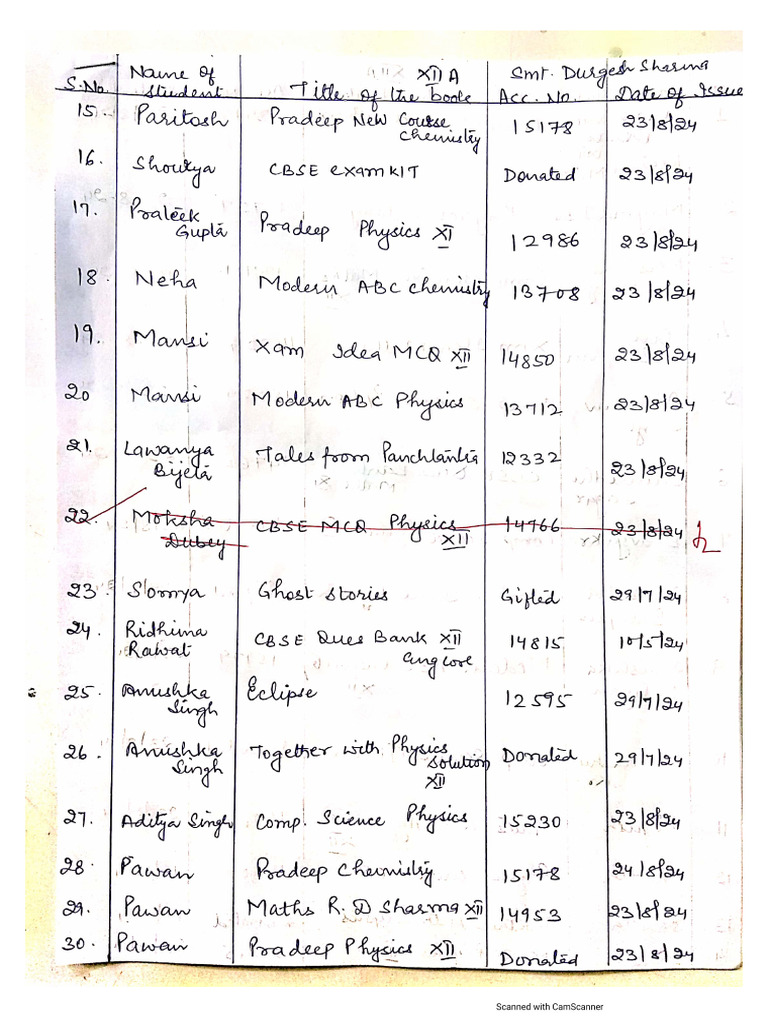 S.No. Name of student Title of the book XII A Smt. Durgesh Sharma Acc. No. Date of Issue
15. Paritosh Pradeep New Course Chemistry 15178 23/8/24
16. Shourya CBSE EXAM KIT Donated 23/8/24
17. Prateek Gupta Pradeep Physics XI 12986 23/8/24
18. Neha Modern ABC Chemistry 13708 23/8/24
19. Mansi Xam Idea MCQ XII 14850 23/8/24
20 Mansi Modern ABC Physics 13712 23/8/24
21. Lawanya Bijeta Tales from Panchtantra 12332 23/8/24
22. Moksha Dubey CBSE MCQ Physics XII 14766 23/8/24
23. Somya Ghost Stories Gifted 29/7/24
24. Ridhima Rawat CBSE Ques Bank XII Eng core 14815 10/5/24
25. Anushka Singh Eclipse 12595 29/7/24
26. Anushka Singh Together with Physics Solution XII Donated 29/7/24
27. Aditya Singh Comp. Science Physics 15230 23/8/24
28. Pawan Pradeep Chemistry 15178 24/8/24
29. Pawan Maths R.D Sharma XII 14953 23/8/24
30. Pawan Pradeep Physics XII Donated 23/8/24
Scanned with CamScanner